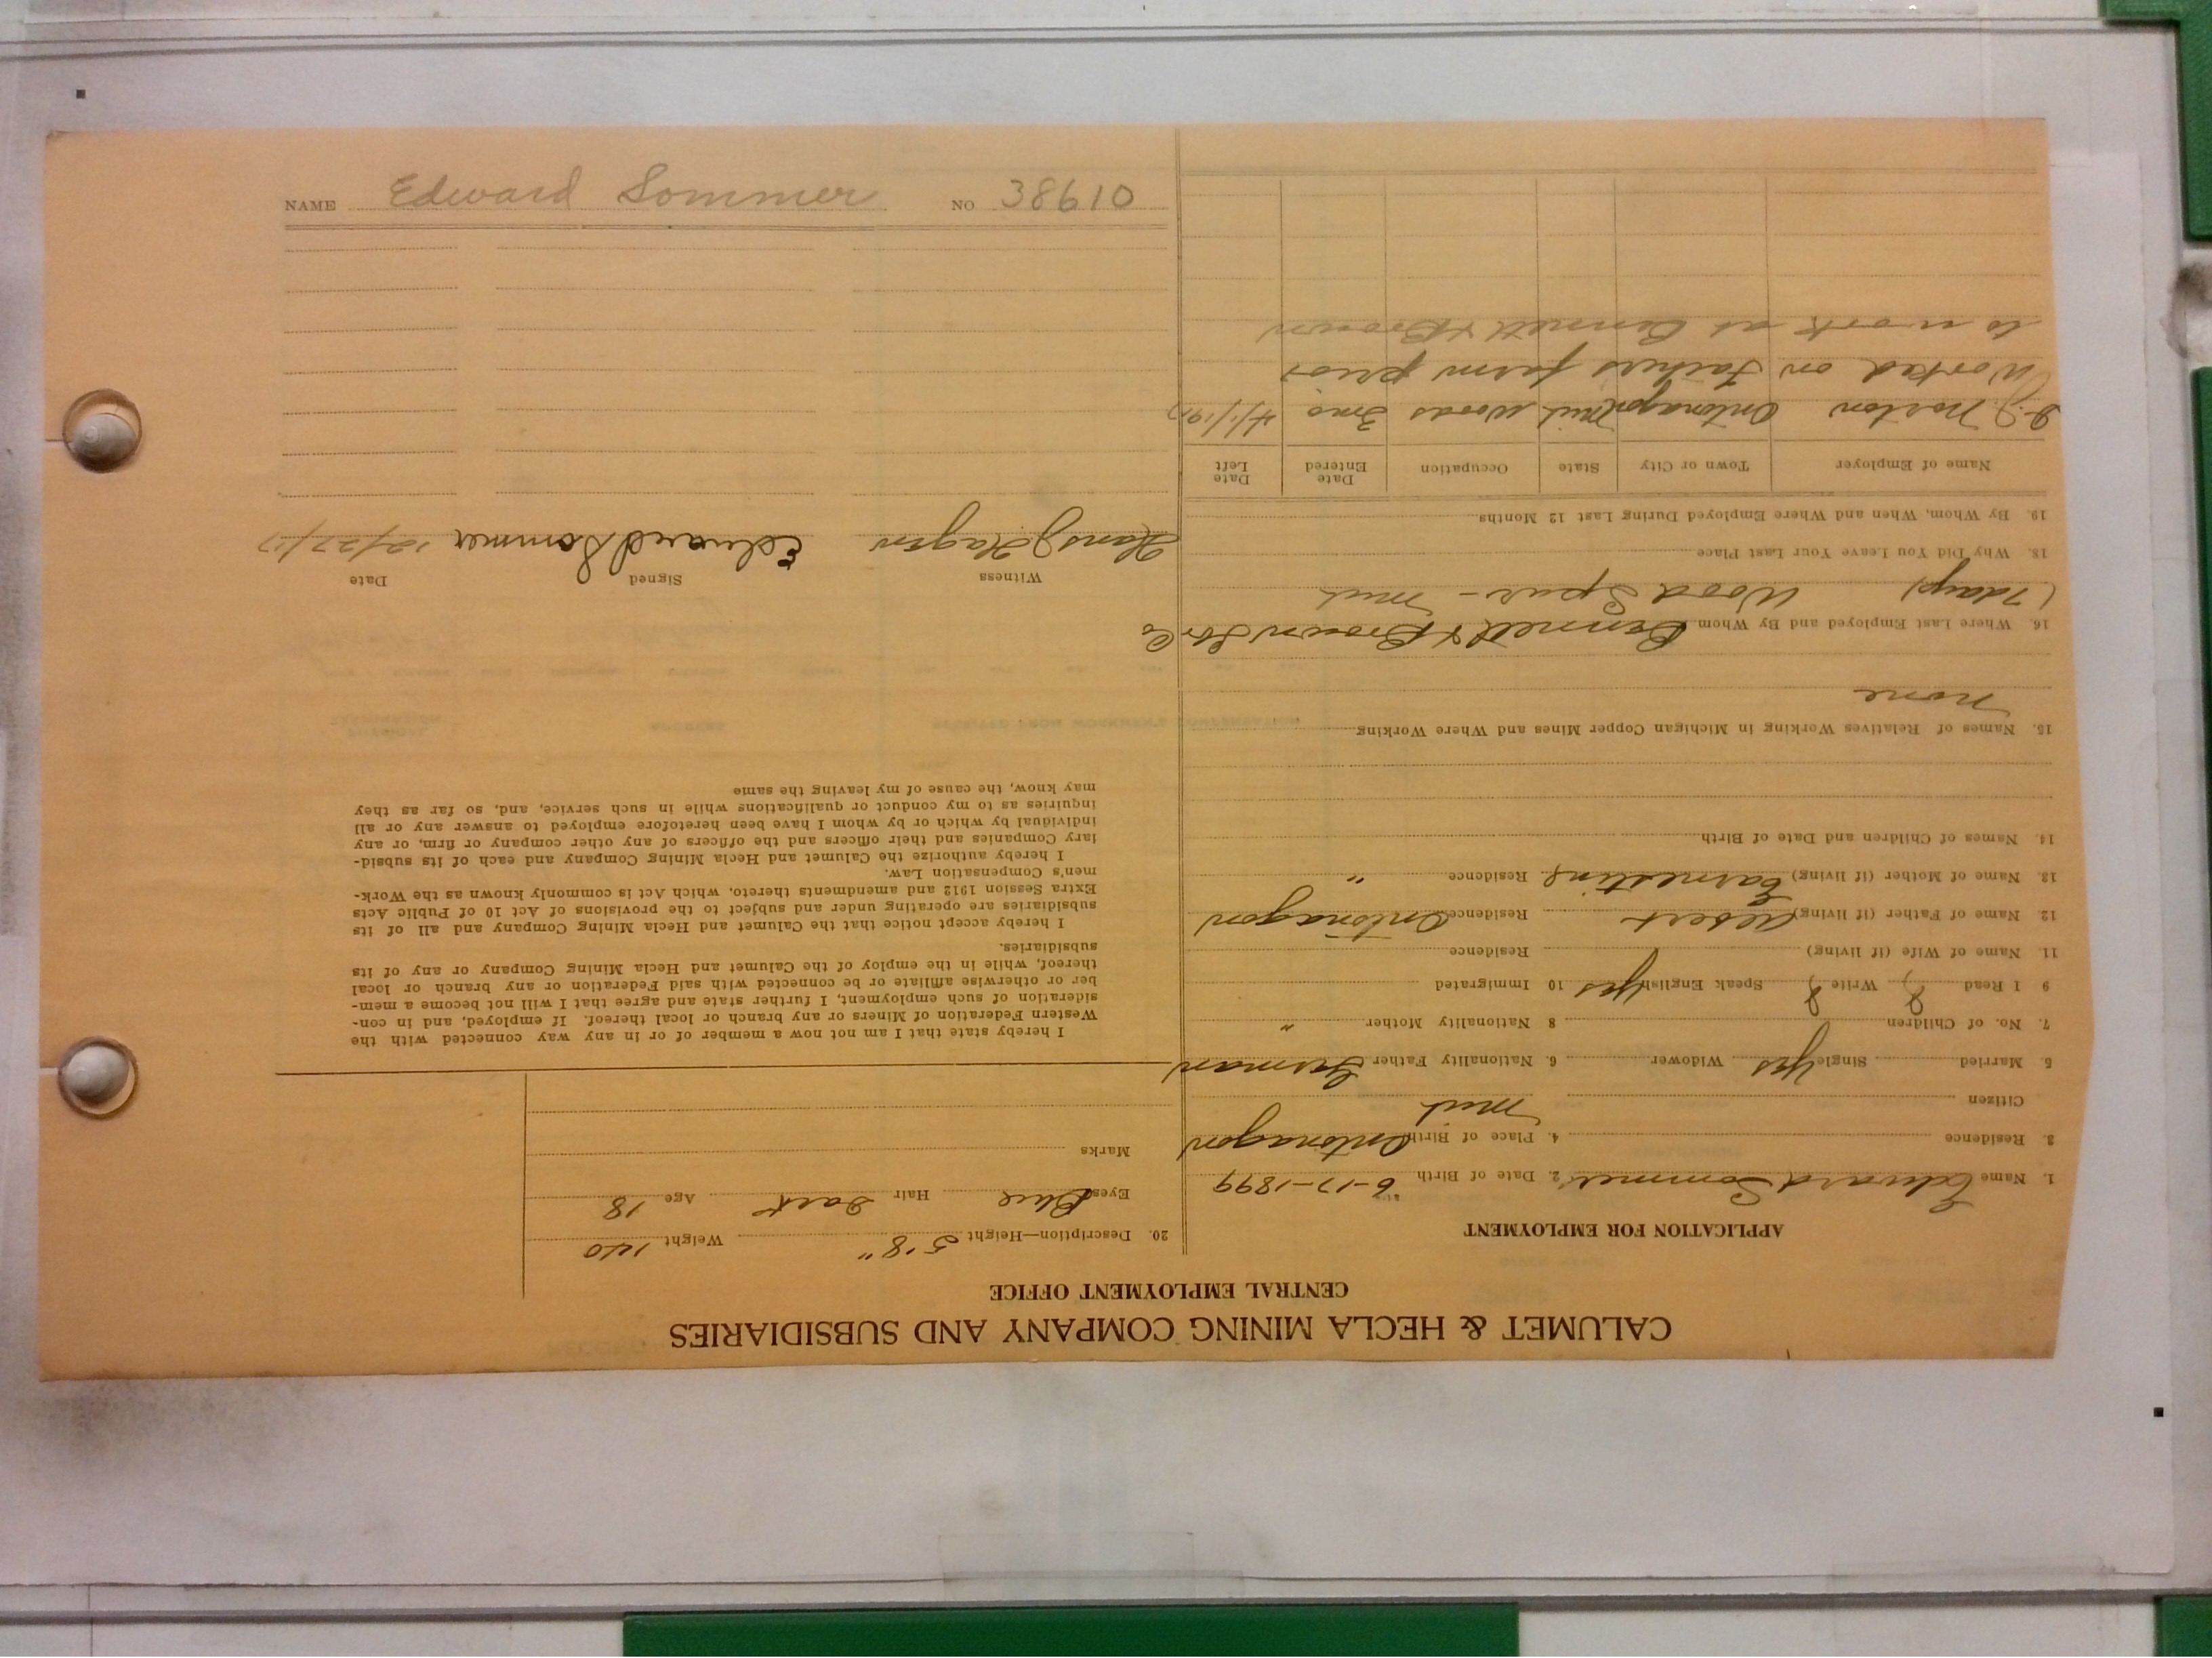 NAME Edward Sommer NO 38610
CALUMET & HECLA MINING COMPANY AND SUBSIDIARIES
CENTRAL EMPLOYMENT OFFICE
APPLICATION FOR EMPLOYMENT
1. Name Edward Sommer 2. Date of Birth 6-17-1899
3. Residence 4. Place of Birth Ontonagon
Citizen Mich
5. Married Single Yes Widower 6. Nationality Father German
7. No. of Children 8 Nationality Mother "
9 I Read Write Speak English Yes 10 Immigrated
11. Name of Wife (if living) Residence
12. Name of Father (if living) Albert Residence Ontonagon
13. Name of Mother (if living) Earnestine Residence "
14. Names of Children and Date of Birth
15. Names of Relatives Working in Michigan Copper Mines and Where Working
None
16. Where Last Employed and By Whom Bennett & Brown Co
(7 days) Wood Spur - Mich
18. Why Did You Leave Your Last Place
19. By Whom, When and Where Employed During Last 12 Months
Name of Employer Town or City State Occupation Date Entered Date Left
D.J. Norton Ontonagon Mich Woods 3mo 4/1/1917
Worked on Fathers farm prior
to work at Bennett & Brown
20. Description—Height 5'8" Weight 140
Eyes Blue Hair Dark Age 18
Marks
I hereby state that I am not now a member of or in any way connected with the
Western Federation of Miners or any branch or local thereof. If employed, and in con-
sideration of such employment, I further state and agree that I will not become a mem-
ber or otherwise affiliate or be connected with said Federation or any branch or local
thereof, while in the employ of the Calumet and Hecla Mining Company or any of its
subsidiaries.
I hereby accept notice that the Calumet and Hecla Mining Company and all of its
subsidiaries are operating under and subject to the provisions of Act 10 of Public Acts
Extra Session 1912 and amendments thereto, which Act is commonly known as the Work-
men's Compensation Law.
I hereby authorize the Calumet and Hecla Mining Company and each of its subsid-
iary Companies and their officers and the officers of any other company or firm, or any
individual by which or by whom I have been heretofore employed to answer any or all
inquiries as to my conduct or qualifications while in such service, and, so far as they
may know, the cause of my leaving the same
Witness Signed Date
Hans J Hagen Edward Sommer 12/27/17